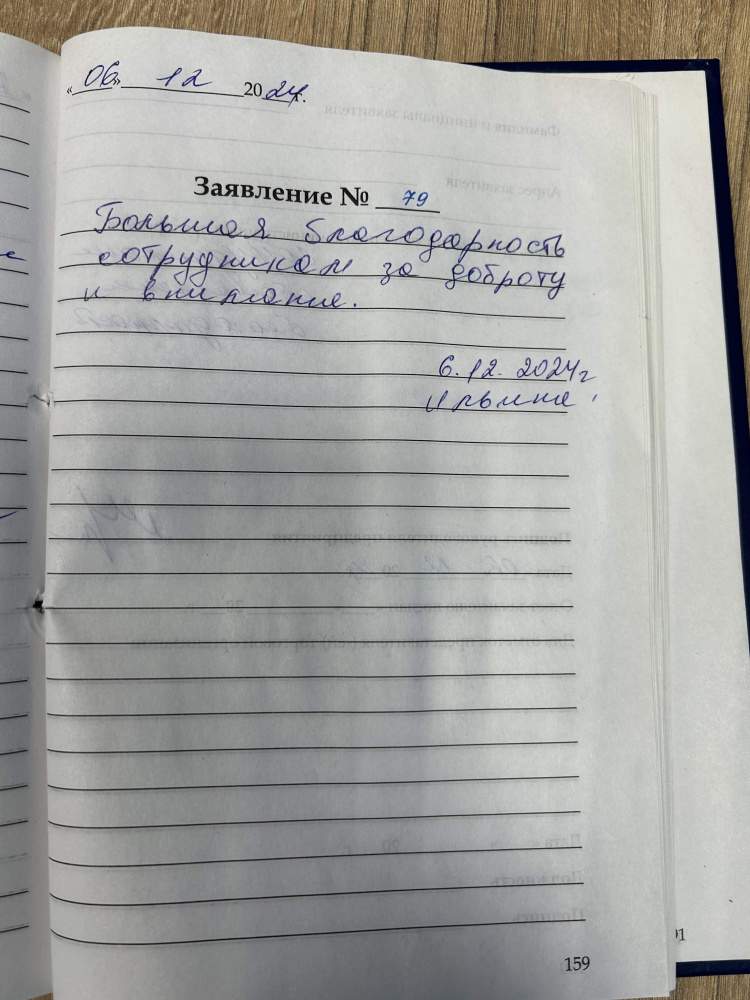 «06» 12 2024г.
Заявление № 79
Большая благодарность
сотрудникам за доброту
и внимание.
6.12.2024г
159
91